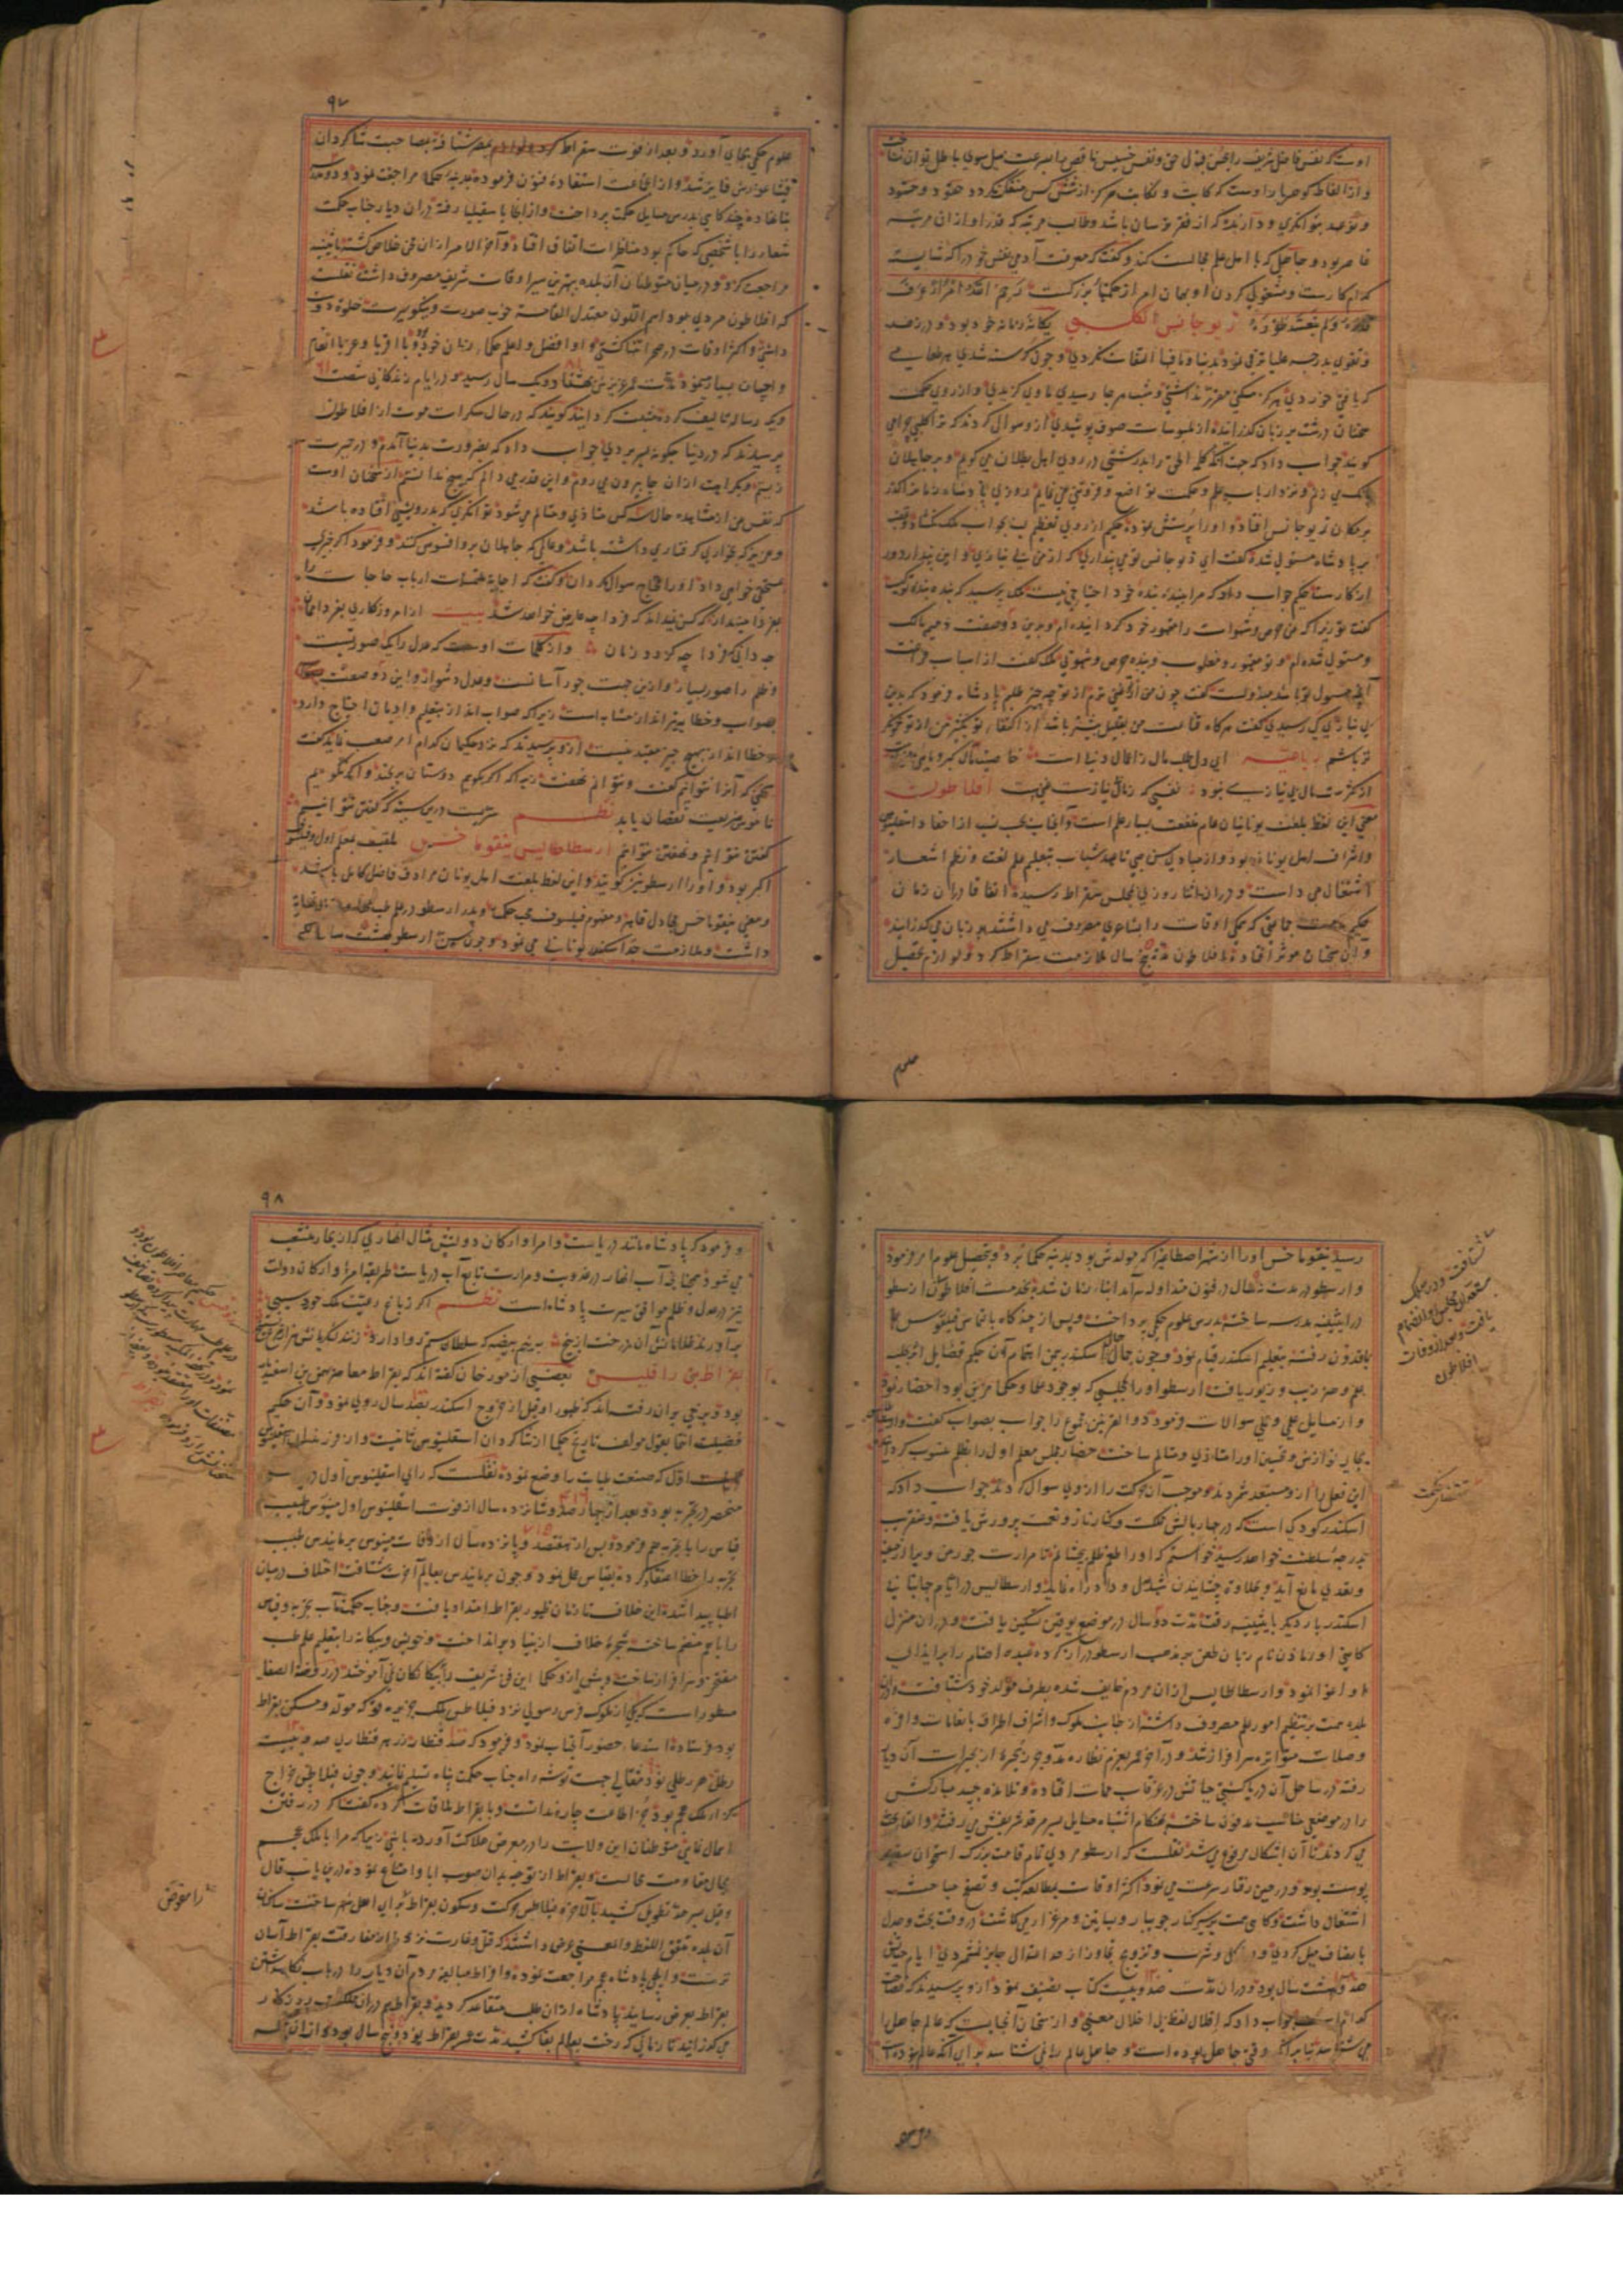 اوست که نفس فاضل شریف را بحسن قبول حق و نفس خسیس ناقص را بسرعت میل بسوی باطل توان شناخت
و از الفاظ گوهربار اوست که کآبت و نکایت هرگز از شش کس منفک نگردد حقود و حسود
و نوعهد بتوانگری و دارنده که از فقر ترسان باشد و طالب مرتبه که قدر او از آن مرتبه
قاصر بود و جاهل که با اهل علم مجالست کند و گفته که معرفت آدمی نفس خود را که شایسته
کدام کارست و مشغولی کردن او بهمان امر از حکمتهاء بزرگست رحم الله امرأ عرف
قدره و لم یتعد طوره دیوجانس الکلبی یگانه زمانه خود بود و در زهد
و تقوی بدرجه علیا ترقی نمود بدنیا و مافیها التفات نکردی و چون گرسنه شدی هر طعامی
که یافتی خوردی هرگز مسکنی معین نداشتی و شب هر جا رسیدی مأوی گزیدی و از روی حکمت
سخنان درشت بر زبان گذراند و از ملبوسات صوف پوشیدی از وسوال کردند که ترا کلبی چرا می
گویند جواب داد که جهت آنکه کلمة الحق را بدرشتی در روی اهل بطلان می گویم و بر جاهلان
بانک می زنم و نزد ارباب علم و حکمت تواضع و فروتنی می نمایم روزی پادشاه زمانرا گذر
بر مکان دیوجانس افتاد و او را پرسش نمود حکیم از روی تعظیم لب بجواب ملک نگشاد
بر پادشاه مستولی شده گفت ای دیوجانس تو می پنداری که از من بی نیازی و این پندار دور
از کارست حکیم جواب داد که مرا ببنده بنده خود احتیاجی نیست ملک پرسید که بنده بنده تو کیست
گفت تو زیرا که من حرص و شهوات را مقهور خود گردانیده ام و بدین دو صفت ذمیم مالک
و مستولی شده ام و تو مقهور و مغلوب و بنده حرص و شهوتی ملک گفت از اسباب فراغت
بی نیازی کی رسیدی گفت هرگاه قناعت من بقلیل بیشتر باشد از اکتفاء تو بکثیر من از تو توانگر
تر باشم رباعیه ای دل طلب مال ز امثال دنیا است
از کثرت مال بی نیازی نبود نفسی که ز مال بی نیازست غنی است افلاطون
معنی این لفظ بلغت یونانیان عام منفعت بسیار علم است و آنجناب بحسب نسب از احفاد اسقلینوس
و اشراف اهل یونان بود و از مبادی سن صبی تا عهد شباب بتعلیم علم لغت و نظم اشعار
اشتغال می داشت و در آن اثنا روزی بمجلس سقراط رسید اتفاقا در آن زمان
حکیم جماعتی که همگی اوقات را بشاعری مصروف می داشتند بر زبان می گذرانید
و این سخنان موثر افتاده افلاطون مدت پنج سال ملازمت سقراط کرد و لوازم تحصیل
علوم
۹۷
علوم حکمی بجای آورد و بعد از فوت سقراط بمصر شتافته بمصاحبت شاگردان
فیثاغورس فایز شد و از آنجماعت استفاده فنون فرموده بمدینه حکماء مراجعت نمود و دو مدرسه
بنا نهاده چندگاهی بدرس مسایل حکمت پرداخت و از آنجا بسقیلیا رفته در آن دیار جناب حکمت
شعار را با شخصی که حاکم بود مناظرات اتفاق افتاد و آخر الامر از آن محن خلاص گشته باثینیه
مراجعت کرد و در میان متوطنان آن بلده بهترین سیر اوقات شریف مصروف داشت نقلست
که افلاطون مردی بود اسمر اللون معتدل القامه خوب صورت و نیکو سیرت خلوة دوست
داشتی و اکثر اوقات در صحرا تنها گشتی و او افضل و اعلم حکماء زمان خود بود با اقربا و غربا انعام
و احسان بسیار نمود مدت عمر عزیزش بهشتاد و یک سال رسید و در ایام زندگانی شصت
و یک رساله تألیف کرد مثبت گردانید گویند که در حال سکرات موت از افلاطون
پرسیدند که در دنیا چگونه بسر بردی جواب داد که بضرورت بدنیا آمدم و در حیرت
زیستم و بکراهت از آن جا بیرون می روم و این قدر می دانم که هیچ ندانستم از سخنان اوست
که نفس من از مشاهده حال سه کس متأذی و متألم می شود توانگری که بدرویشی افتاده باشد
و عزیزی که بخواری گرفتاری داشته باشد و عالمی که جاهلان برو افسوس کنند و فرمود اگر چیزی
بمستحق خواهی داد او را محتاج سوال مگردان و گفت که اجابت ملتمسات ارباب حاجات را
بفردا مینداز که کس نمیداند که فردا چه عارض خواهد شد بیت از امروز کاری بفردا ممان
چه دانی که فردا چه گردد زمان و از کلمات اوست که عدل را یک صورتست
و ظلم را صور بسیار و از ین جهت جور آسانست و عدل دشوار و این دو صفت
بصواب و خطا تیر انداز مشابه است زیرا که صواب انداز بتعلیم و ادمان احتیاج دارد
و خطا انداز بهیچ چیز مقید نیست از و پرسیدند که نزد حکیمان کدام امر صعب نماید گفت
سخنی که آنرا نتوانیم گفت و نتوانیم نهفت زیرا که اگر بگویم دوستان برنجند و اگر نگویم
ناموس شریعت نقصان یابد نظم سریست درین سینه که گفتن نتوانیم
گفتن نتوانیم و نهفتن نتوانیم ارسطاطالیس نیقوماخس ملقب بمعلم اول
اکبر بود و او را ارسطو نیز گویند و این لفظ بلغت اهل یونان مرادف فاضل کامل باشد
و معنی نیقوماخس مجادل قاهر و مفهوم فیلسوف محب حکمت و پدر ارسطو در علم طب
داشت و ملازمت جد اسکندر یونانی می نمود و چون سن ارسطو بهشت سالگی
رسید نیقوماخس او را از شهر اصطاغیرا که مولدش بود بمدینه حکما برد و بتحصیل علوم امر فرمود
و ارسطو در مدت نه سال در فنون متداوله سرآمد ابناء زمان شد بخدمت افلاطون
در اثینیه مدرسه ساخت بدرس علوم حکمی پرداخت و پس از چندگاه بالتماس فیلقوس
بماقدون رفته بتعلیم اسکندر قیام نمود و چون جمال حال اسکندر بیمن اهتمام آن حکیم فضایل اکتساب
بعلم و هنر زیب و زیور یافت ارسطو او را بمجلسی که بوجود علما و حکما مزین بود احضار نمود
و از مسایل علمی و عملی سوالات فرمود ذو القرنین مجموع را جواب بصواب گفت
بجای نوازش و تحسین او را متأذی و متألم ساخت حضار مجلس معلم اول را بظلم منسوب گردانیدند
این فعل را از و مستبعد شمردند و موجب آن حرکت را از وی سوال کردند جواب داد که
اسکندر کودکی است که در چار بالش مملکت و کنار ناز و نعمت پرورش یافته و عنقریب
بدرجه سلطنت خواهد رسید خواستم که او را طعم ظلم بچشانم تا مرارت جور من ویرا از جفا
و تعدی مانع آید و بحلاوة چشانیدن شهد عدل و داد راه نماید و ارسطالیس در ایام جهانبانی
اسکندر بار دیگر باثینیه رفته مدت ده سال در موضع لوقین تمکین یافت و در آن منزل
کاهنی اورماذن نام زبان طعن بر مذهب ارسطو دراز کرده عبده اصنام را بر ایذاء
او اغوا نمود و ارسطاطالیس از آن مردم خایف شده بطرف مولد خود شتافت
بلده همت بر تنظیم امور علم مصروف داشت از جانب ملوک و اشراف اطراف بانعامات وافره
و صلات متواتره سرافراز شد و در آخر عمر بعزم نظاره مد و جزر بحیرۀ از بحیرات آن دیار
رفته در ساحل آن دریا کشتی حیاتش در غرقاب ممات افتاده و تلامذه جسد مبارکش
را در موضعی مناسب مدفون ساختند بهنگام اشتباه مسایل بسر مرقد شریفش می رفتند و القا بحث
می کردند تا آن اشکال مرفوع می شد نقلست که ارسطو مردی تمام قامت بزرگ استخوان سفید
پوست بود و در حین رفتار سرعت می نمود اکثر اوقات بمطالعه کتب و تصفح مباحث
اشتغال داشت و گاهی بسیر کنار جویبار و بساتین و مرغزار می گاشت در وقت بحث و جدل
بانصاف میل کردی و در اکل و شرب و تزویج تجاوز از حد اعتدال جایز نشمردی ایام حیاتش
شصت و هشت سال بود و در آن مدت صد و بیست کتاب تصنیف نمود از و پرسیدند که فصاحت
کدام است جواب داد که اقلال لفظ بی اخلال معنی و از سخنان آنجنابست که عالم جاهل را
می شناسد بنا بر آنکه وقتی جاهل بوده است و جاهل عالم را نمی شناسد برای آنکه عالم نبوده است
۹۸
و فرمود که پادشاه مانند دریاست و امرا و ارکان دولتش مثال انهاری که از بحار منشعب
می شود همچنانکه آب انهار در عذوبت و مرارت تابع آب دریاست طریقه امراء و ارکان دولت
نیز در عدل و ظلم موافق سیرت پادشاه است نظم اگر ز باغ رعیت ملک خورد سیبی
برآورند غلامانش آن درخت از بیخ به نیم بیضه که سلطان ستم روا دارد زنند لشکریانش هزار مرغ بسیخ
بقراط بن راقلیس بعضی از مورخان گفته اند که بقراط معاصر بهمن بن اسفندیار
بود و برخی بران رفته اند که ظهور او قبل از خروج اسکندر بصد سال روی نمود و آن حکیم
فضیلت انتما بقول مولف تاریخ حکما از شاگردان اسقلینوس ثانیست و از فرزندان اسقلینوس
اول که صنعت طبابت را وضع نمود نقلست که رای اسقلینوس اول در
منحصر در تجربه بود و بعد از چهار صد و شانزده سال از فوت اسقلینوس اول مینوس طبیب
قیاس را با تجربه جمع فرمود و پس از هفتصد و پانزده سال از وفات مینوس برمانیدس طبیب
تجربه را خطا اعتقاد کرده بقیاس عمل نمود و چون برمانیدس بعالم آخرت شتافت اختلاف در میان
اطبا پیدا شد و این خلاف تا زمان ظهور بقراط امتداد یافت و جناب حکمت مآب تجربه و قیاس
را باهم منضم ساخته شجرۀ خلاف از بنیاد برانداخت و خویش و بیگانه را بتعلیم علم طب
مفتخر و سرافراز ساخت و پیش از و حکما این فن شریف را به بیگانگان نمی آموختند در روضة الصفا
مسطور است که یکی از ملوک فرس رسولی نزد فیلاطس ملک جزیره قو که مولد و مسکن بقراط
بود فرستاده استدعاء حضور آنجناب نمود و فرمود که صد قنطار زر هر قنطاری صد و بیست
رطل جهت توشه راه جناب حکمت پناه تسلیم نمایند و چون فیلاطس خراج
گزار ملک عجم بود بجز اطاعت چاره ندانست و با بقراط ملاقات کرده گفت که در رفتن
اهمال نمائی متوطنان این ولایت را در معرض هلاکت آورده باشی زیرا که مرا با ملک عجم
مجال مقاومت محالست و بقراط از توجه بدان صوب ابا و امتناع نمود و درین باب قال
و قیل بسر حد تطویل کشید بالآخره فیلاطس حرکت و سکون بقراط برای اهل شهر ساخت ساکنان
آن بلده متفق اللفظ و المعنی عرض داشتند که قتل و غارت نزد ما از مفارقت بقراط آسان
ترست و ایلچی پادشاه عجم مراجعت نمود و افراط مبالغه مردم آن دیار را در باب نگاهداشتن
بقراط بعرض رسانید پادشاه از آن طلب متقاعد گردید و بقراط هم در آن مملکت روزگار
می گذرانید تا زمانی که رخت بعالم بقا کشید مدت عمر بقراط نود و پنج سال بود